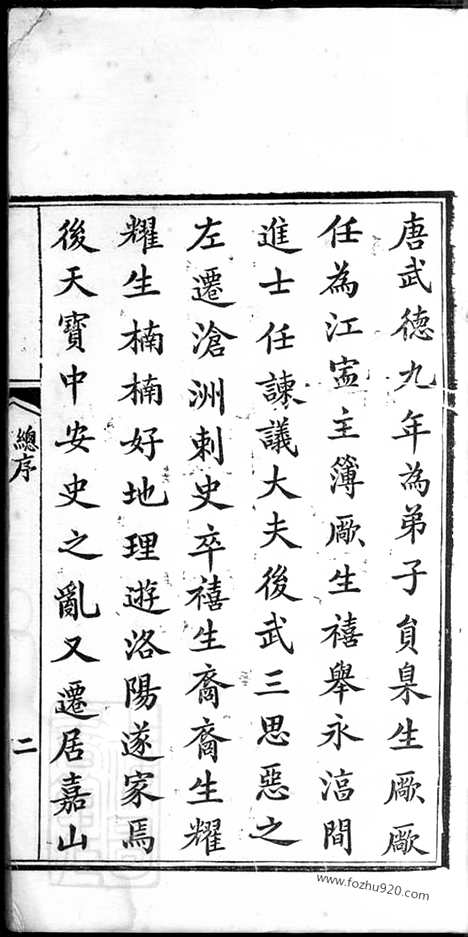 唐武德九年為弟子員臬生厫厫
任為江寍主簿厫生禧舉永湻間
進士任諫議大夫後武三思惡之
左遷滄洲刺史卒禧生裔裔生耀
耀生楠楠好地理遊洛陽遂家焉
後天寶中安史之亂又遷居嘉山
總序
二
www.fozhu920.com